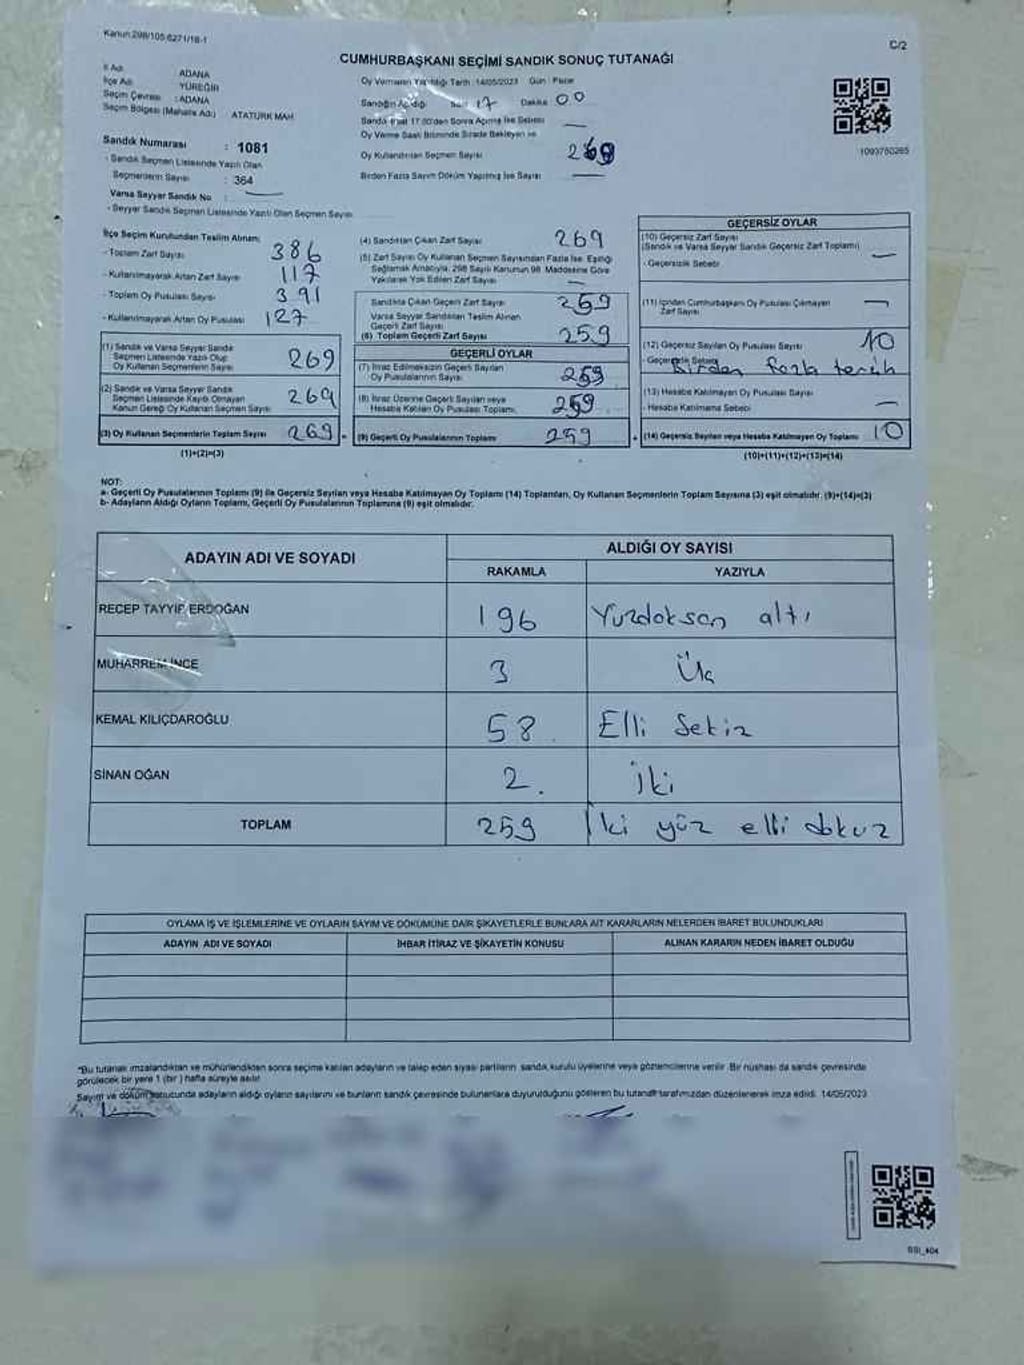 Kanun:298/105 6271/18-1
C/2
CUMHURBAŞKANI SEÇİMİ SANDIK SONUÇ TUTANAĞI
İl Adı ADANA
İlçe Adı YÜREĞİR
Seçim Çevresi : ADANA
Seçim Bölgesi (Mahalle Adı) ATATÜRK MAH.
Oy Vermenin Yapıldığı Tarih :14/05/2023 Gün : Pazar
Sandığın Açıldığı Saat 17 Dakika 00
Sandık Saat 17.00'den Sonra Açılmış İse Sebebi —
Oy Verme Saati Bitiminde Sırada Bekleyen ve
Oy Kullandırılan Seçmen Sayısı 269
Birden Fazla Sayım Döküm Yapılmış İse Sayısı —
1093760265
Sandık Numarası : 1081
- Sandık Seçmen Listesinde Yazılı Olan
Seçmenlerin Sayısı : 364
Varsa Seyyar Sandık No : —
- Seyyar Sandık Seçmen Listesinde Yazılı Olan Seçmen Sayısı
İlçe Seçim Kurulundan Teslim Alınan;
- Toplam Zarf Sayısı 386
- Kullanılmayarak Artan Zarf Sayısı 117
- Toplam Oy Pusulası Sayısı 391
- Kullanılmayarak Artan Oy Pusulası 127
(1) Sandık ve Varsa Seyyar Sandık
Seçmen Listesinde Yazılı Olup
Oy Kullanan Seçmenlerin Sayısı 269
(2) Sandık ve Varsa Seyyar Sandık
Seçmen Listesinde Kayıtlı Olmayan
Kanun Gereği Oy Kullanan Seçmen Sayısı 269
(3) Oy Kullanan Seçmenlerin Toplam Sayısı 269 =
(1)+(2)=(3)
(4) Sandıktan Çıkan Zarf Sayısı 269
(5) Zarf Sayısı Oy Kullanan Seçmen Sayısından Fazla İse, Eşitliği
Sağlamak Amacıyla, 298 Sayılı Kanunun 98. Maddesine Göre
Yakılarak Yok Edilen Zarf Sayısı —
Sandıkta Çıkan Geçerli Zarf Sayısı 259
Varsa Seyyar Sandıktan Teslim Alınan
Geçerli Zarf Sayısı
(6) Toplam Geçerli Zarf Sayısı 259
GEÇERLİ OYLAR
(7) İtiraz Edilmeksizin Geçerli Sayılan
Oy Pusulalarının Sayısı 259
(8) İtiraz Üzerine Geçerli Sayılan veya
Hesaba Katılan Oy Pusulası Toplamı 259
(9) Geçerli Oy Pusulalarının Toplamı 259 +
GEÇERSİZ OYLAR
(10) Geçersiz Zarf Sayısı
(Sandık ve Varsa Seyyar Sandık Geçersiz Zarf Toplamı) —
- Geçersizlik Sebebi
(11) İçinden Cumhurbaşkanı Oy Pusulası Çıkmayan
Zarf Sayısı —
(12) Geçersiz Sayılan Oy Pusulası Sayısı 10
- Geçersizlik Sebebi Birden fazla tercih
(13) Hesaba Katılmayan Oy Pusulası Sayısı
- Hesaba Katılmama Sebebi —
(14) Geçersiz Sayılan veya Hesaba Katılmayan Oy Toplamı 10
(10)+(11)+(12)+(13)=(14)
NOT:
a- Geçerli Oy Pusulalarının Toplamı (9) ile Geçersiz Sayılan veya Hesaba Katılmayan Oy Toplamı (14) Toplamları, Oy Kullanan Seçmenlerin Toplam Sayısına (3) eşit olmalıdır. (9)+(14)=(3)
b- Adayların Aldığı Oyların Toplamı, Geçerli Oy Pusulalarının Toplamına (9) eşit olmalıdır.
ADAYIN ADI VE SOYADI ALDIĞI OY SAYISI
RAKAMLA YAZIYLA
RECEP TAYYİP ERDOĞAN 196 Yüzdoksan altı
MUHARREM İNCE 3 Üç
KEMAL KILIÇDAROĞLU 58. Elli Sekiz
SİNAN OĞAN 2. İki
TOPLAM 259 İki yüz elli dokuz
OYLAMA İŞ VE İŞLEMLERİNE VE OYLARIN SAYIM VE DÖKÜMÜNE DAİR ŞİKAYETLERLE BUNLARA AİT KARARLARIN NELERDEN İBARET BULUNDUKLARI
ADAYIN ADI VE SOYADI İHBAR İTİRAZ VE ŞİKAYETİN KONUSU ALINAN KARARIN NEDEN İBARET OLDUĞU
*Bu tutanak imzalandıktan ve mühürlendikten sonra seçime katılan adayların ve talep eden siyasi partilerin sandık kurulu üyelerine veya gözlemcilerine verilir. Bir nüshası da sandık çevresinde
görülecek bir yere 1 (bir ) hafta süreyle asılır.
Sayım ve döküm sonucunda adayların aldığı oyların sayılarını ve bunların sandık çevresinde bulunanlara duyurulduğunu gösteren bu tutanak tarafımızdan düzenlenerek imza edildi. 14/05/2023
SSI_404